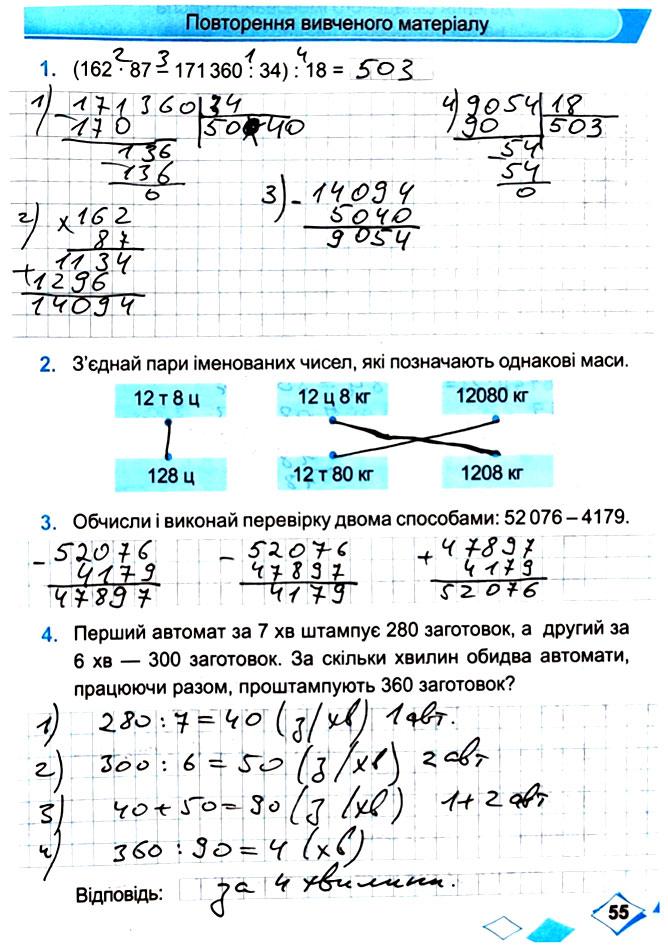 Повторення вивченого матеріалу
1. (162 · 87 – 171 360 : 34) : 18 = 503
2 3 1 4
1) 171360 34
170 5040
136
136
0
4) 9054 18
90 503
54
54
0
2) × 162
87
1134
+ 1296
14094
3) – 14094
5040
9054
2. З’єднай пари іменованих чисел, які позначають однакові маси.
12 т 8 ц 12 ц 8 кг 12080 кг
128 ц 12 т 80 кг 1208 кг
3. Обчисли і виконай перевірку двома способами: 52 076 – 4179.
– 52076 – 52076 + 47897
4179 47897 4179
47897 4179 52076
4. Перший автомат за 7 хв штампує 280 заготовок, а другий за
6 хв — 300 заготовок. За скільки хвилин обидва автомати,
працюючи разом, проштампують 360 заготовок?
1) 280 : 7 = 40 (з/хв) 1 авт.
2) 300 : 6 = 50 (з/хв) 2 авт
3) 40 + 50 = 90 (з/хв) 1+2 авт
4) 360 : 90 = 4 (хв)
Відповідь: за 4 хвилини.
55